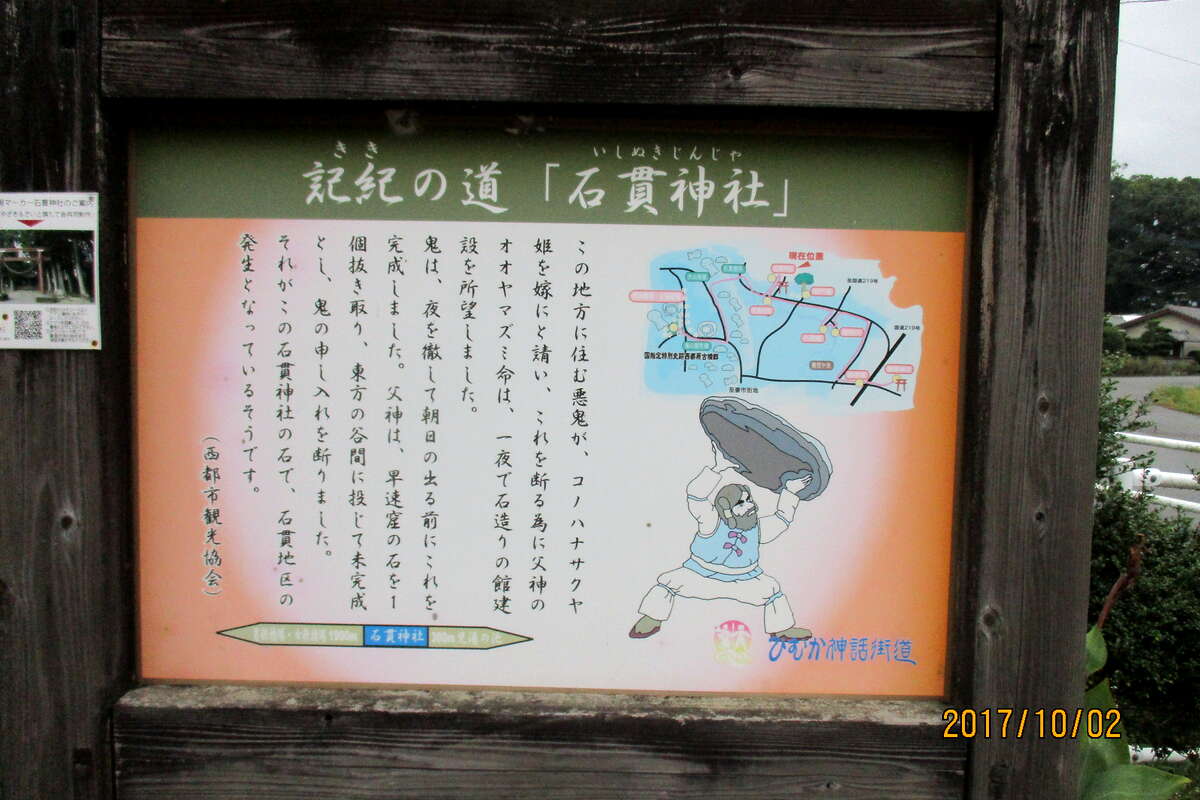 きき
いしぬきじんじゃ
記紀の道「石貫神社」
この地方に住む悪鬼が、コノハナサクヤ
姫を嫁にと請い、これを断る為に父神の
オオヤマズミ命は、一夜で石造りの館建
設を所望しました。
鬼は、夜を徹して朝日の出る前にこれを
完成しました。父神は、早速窟の石を1
個抜き取り、東方の谷間に投じて未完成
とし、鬼の申し入れを断りました。
それがこの石貫神社の石で、石貫地区の
発生となっているそうです。
(西都市観光協会)
現在位置
国道219号
国指定特別史跡西都原古墳群
至妻市街地
1000m
石貫神社
200m
ひむか神話街道
2017/10/02